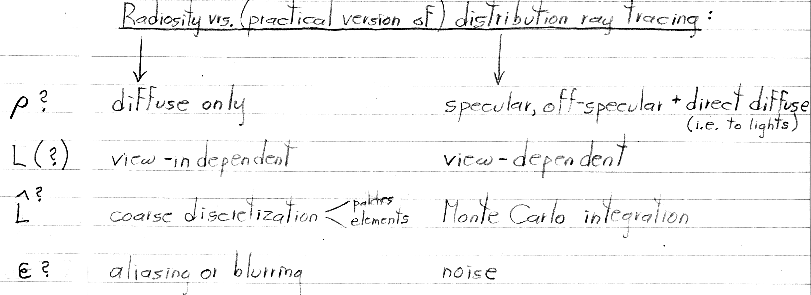 Radiosity vrs. (practical version of) distribution ray tracing:
ρ? diffuse only specular, off-specular + direct diffuse
(i.e. to lights)
L(?) view-independent view-dependent
L̂? coarse discretization < patches elements Monte Carlo integration
ε? aliasing or blurring noise